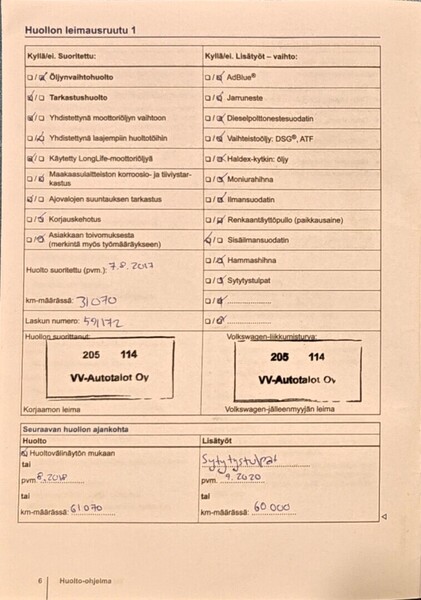 Huollon leimausruutu 1
Kyllä/ei. Suoritettu:
Kyllä/ei. Lisätyöt – vaihto:
Öljynvaihtohuolto
AdBlue®
Tarkastushuolto
Jarruneste
Yhdistettynä moottoriöljyn vaihtoon
Dieselpolttonestesuodatin
Yhdistettynä laajempiin huoltotöihin
Vaihteistoöljy: DSG®, ATF
Käytetty LongLife-moottoriöljyä
Haldex-kytkin: öljy
Maakaasulaitteiston korroosio- ja tiiviystar-
kastus
Moniurahihna
Ajovalojen suuntauksen tarkastus
Ilmansuodatin
Korjauskehotus
Renkaantäyttöpullo (paikkausaine)
Asiakkaan toivomuksesta
(merkintä myös työmääräykseen)
Sisäilmansuodatin
Hammashihna
Huolto suoritettu (pvm.): 7.8.2017
Sytytystulpat
km-määrässä: 31070
Laskun numero: 591172
Huollon suorittanut:
Volkswagen-liikkumisturva:
205 114
VV-Autotalot Oy
205 114
VV-Autotalot Oy
Korjaamon leima
Volkswagen-jälleenmyyjän leima
Seuraavan huollon ajankohta
Huolto
Lisätyöt
Huoltovälinäytön mukaan
Sytytystulpat
tai
pvm 8.2018
pvm. 9.2020
tai
tai
km-määrässä: 61070
km-määrässä: 60 000
6 Huolto-ohjelma